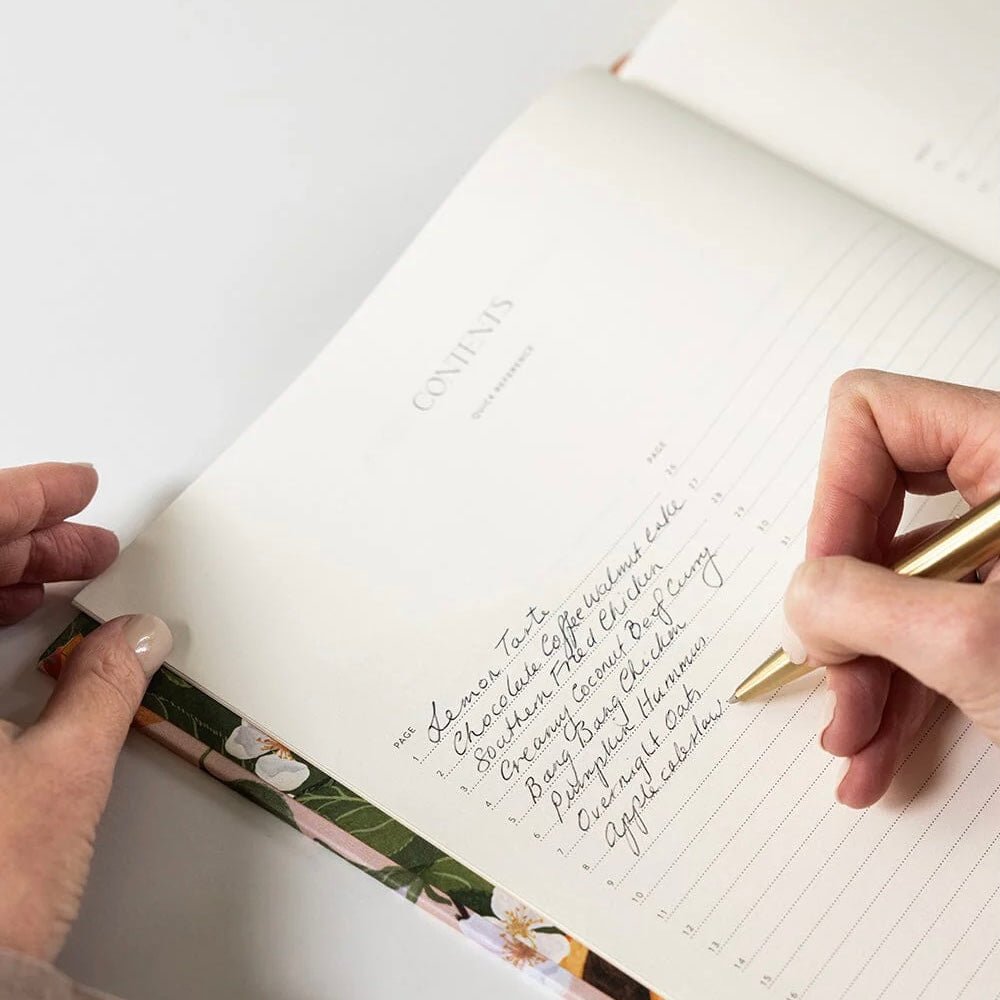 CONTENTS
QUICK REFERENCE
PAGE
1 Lemon Tarte
2 Chocolate Coffee Walnut cake
3 Southern Fried Chicken
4 Creamy Coconut Beef Curry
5 Bang Bang Chicken
6 Pumpkin Hummus
7 Overnight Oats
8 apple coleslaw
9
10
11
12
13
14
15
16
PAGE
26
27
28
29
30
31